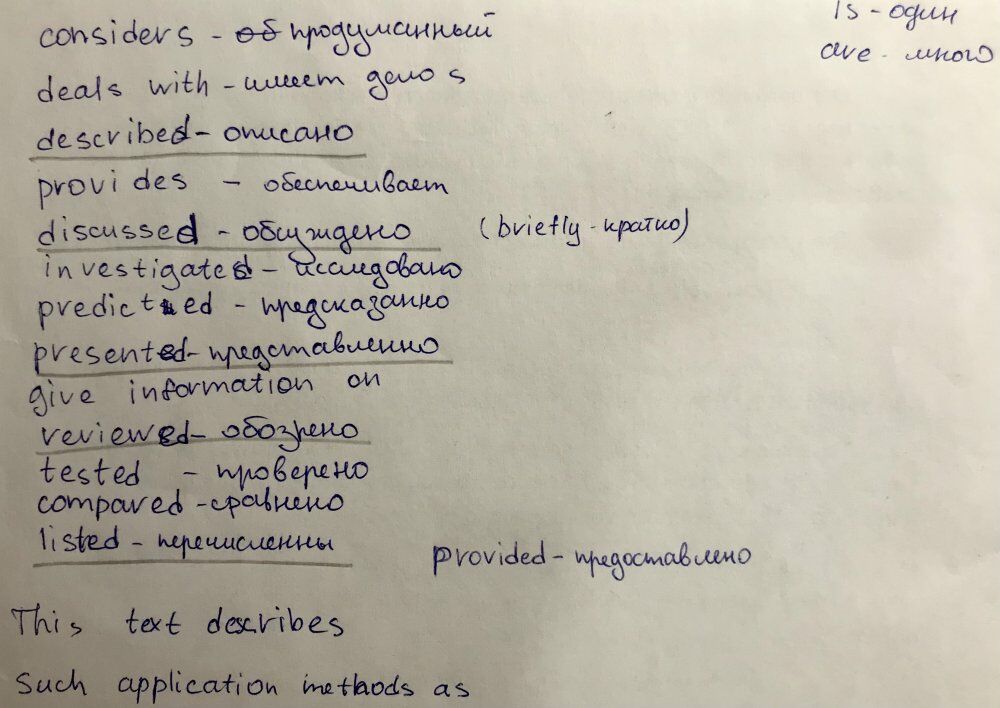 is - один
are - много
considers - об продуманный
deals with - имеет дело s
described - описано
provides - обеспечивает
discussed - обсуждено (briefly - кратко)
investigated - исследовано
predicted - предсказанно
presented - представленно
give information on
reviewed - обозрено
tested - проверено
compared - сравнено
listed - перечисленны
provided - предоставлено
This text describes
Such application methods as